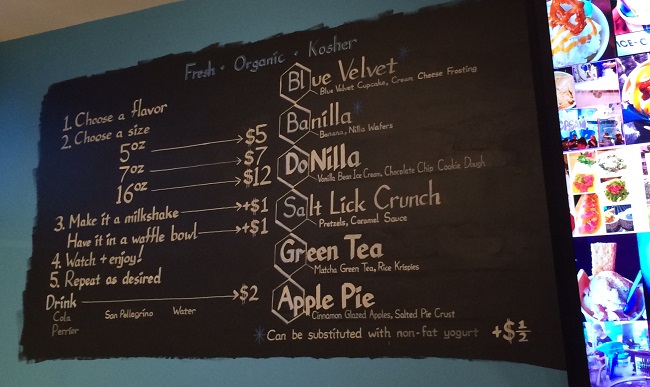 Fresh • Organic • Kosher
1. Choose a flavor
2. Choose a size
5oz $5
7oz $7
16oz $12
3. Make it a milkshake +$1
Have it in a waffle bowl +$1
4. Watch + enjoy!
5. Repeat as desired
Drink $2
Cola San Pellegrino Water
Perrier
Blue Velvet*
Blue Velvet Cupcake, Cream Cheese Frosting
Banilla*
Banana, Nilla Wafers
DoNilla
Vanilla Bean Ice Cream, Chocolate Chip Cookie Dough
Salt Lick Crunch
Pretzels, Caramel Sauce
Green Tea
Matcha Green Tea, Rice Krispies
Apple Pie
Cinnamon Glazed Apples, Salted Pie Crust
*Can be substituted with non-fat yogurt +$½
ICE-C